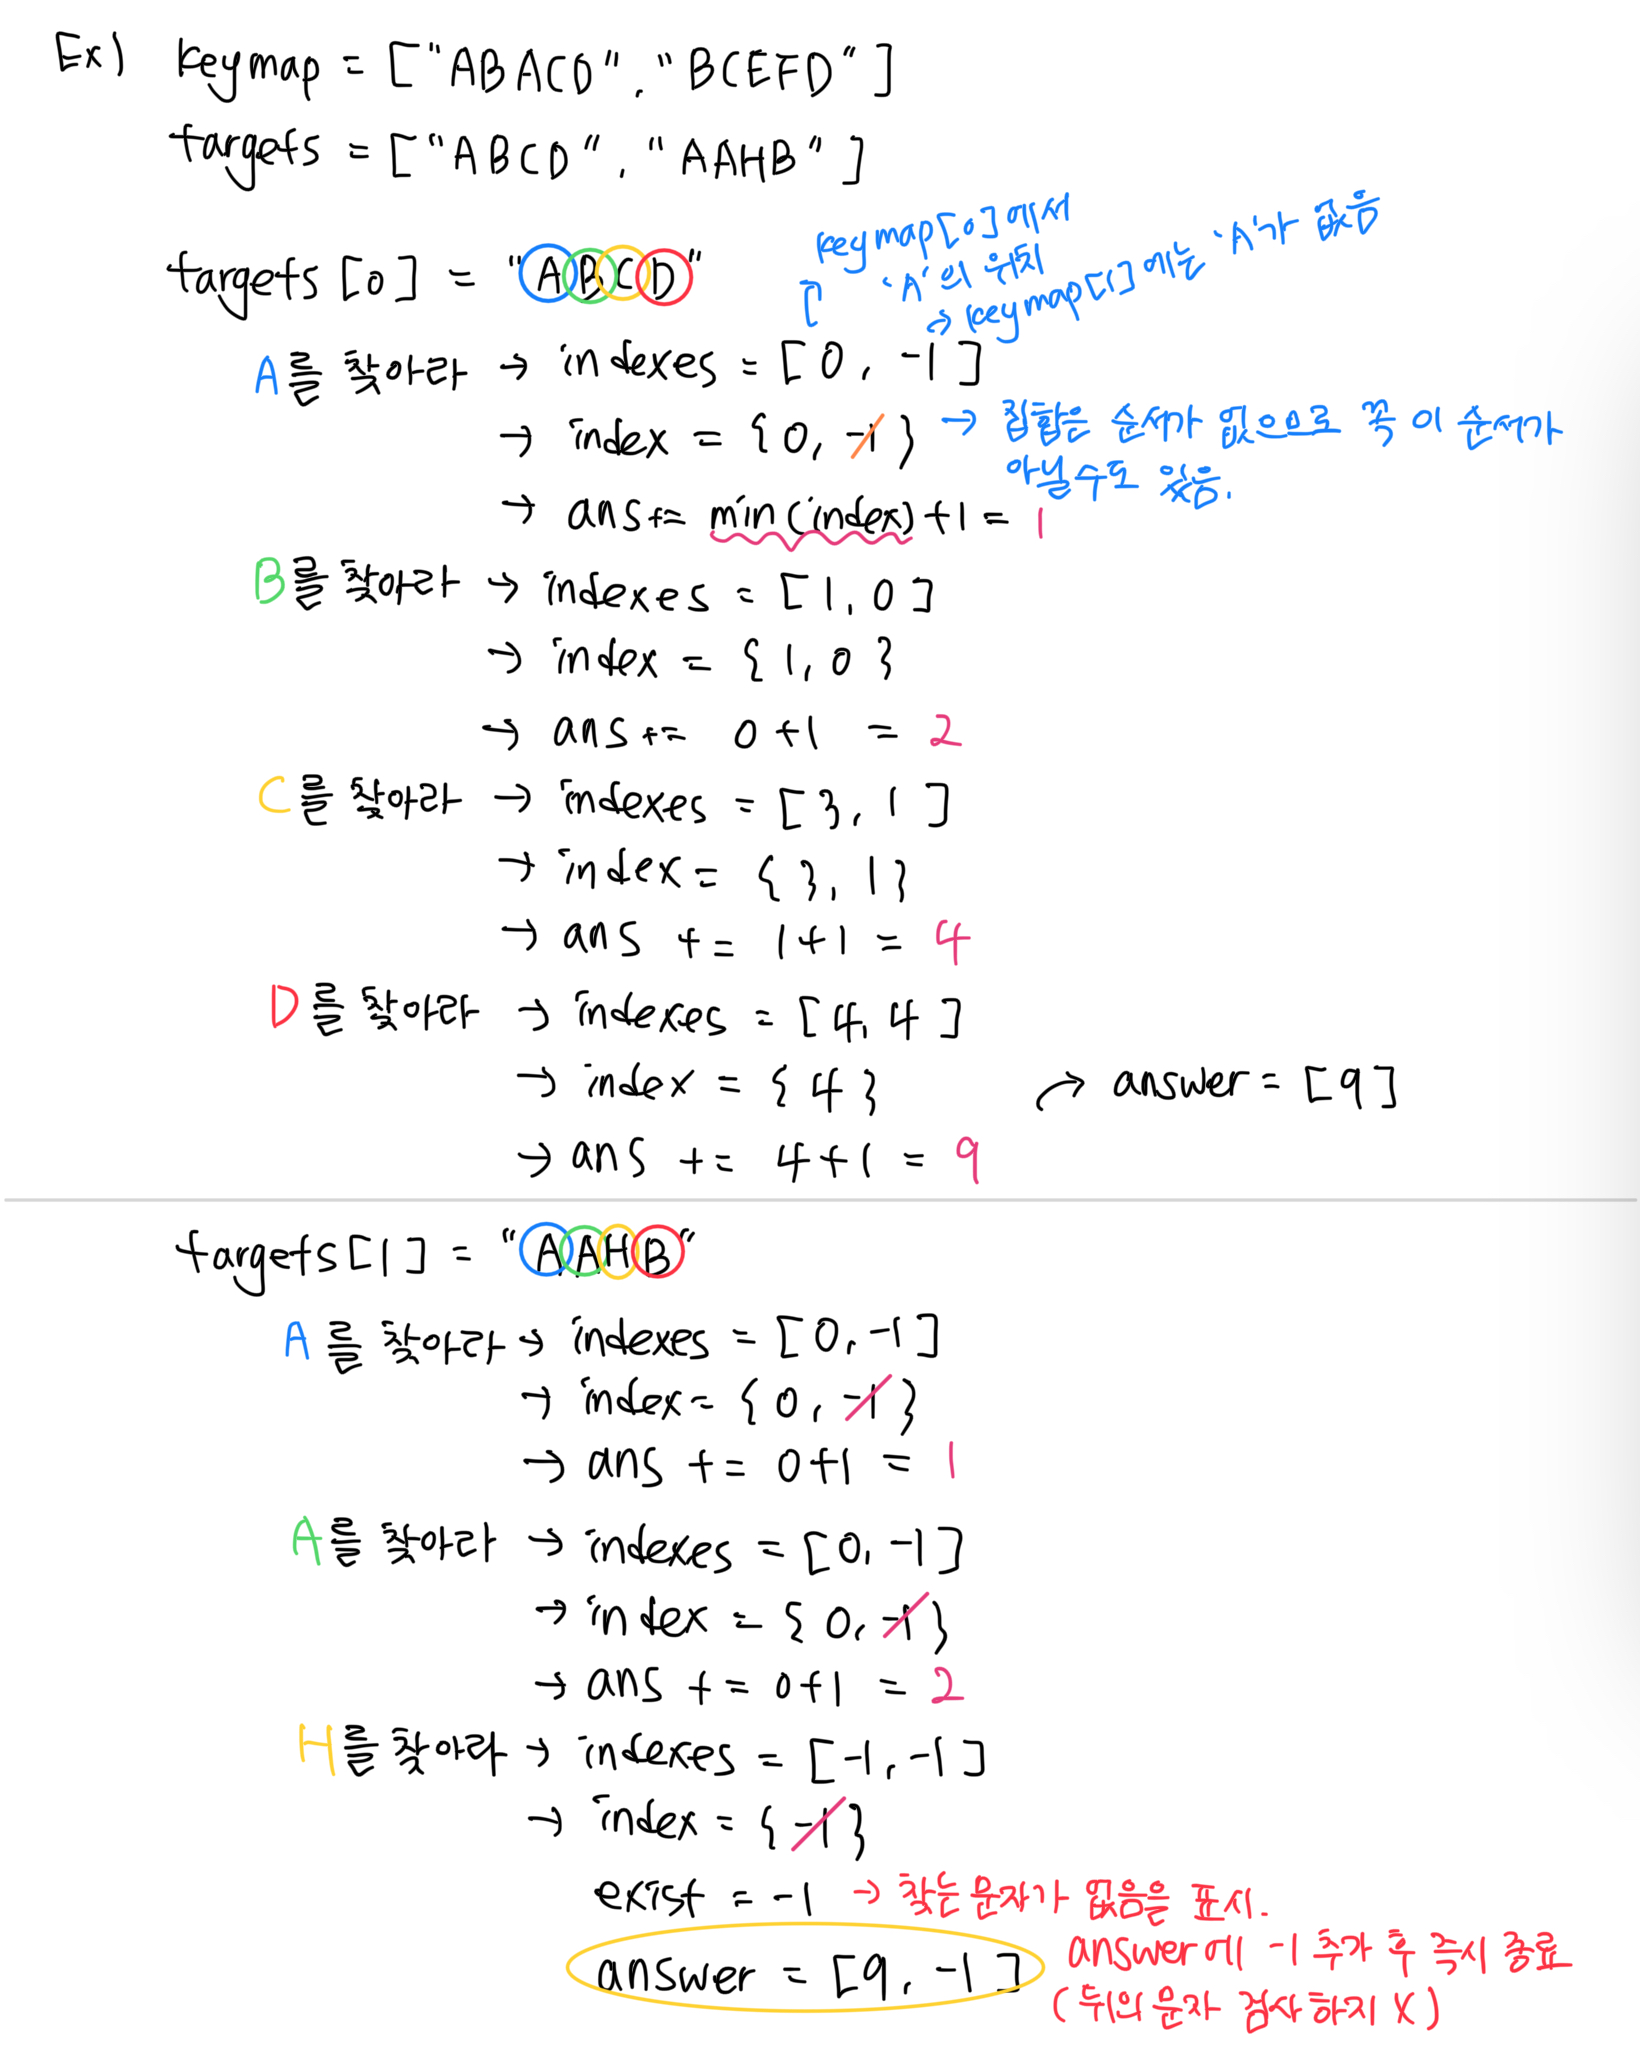 Ex) keymap = ["ABACD", "BCEFD"]
targets = ["ABCD", "AAHB"]
targets[0] = "ABCD"
keymap[0]에서
'A'의 위치
→ keymap[1]에는 'A'가 없음
A를 찾아라 → indexes = [0, -1]
→ index = {0, -1} → 집합은 순서가 없으므로 꼭 이 순서가
아닐수도 있음.
→ ans += min(index)+1 = 1
B를 찾아라 → indexes = [1, 0]
→ index = {1, 0}
→ ans += 0+1 = 2
C를 찾아라 → indexes = [3, 1]
→ index = {3, 1}
→ ans += 1+1 = 4
D를 찾아라 → indexes = [4, 4]
→ index = {4}
→ answer = [9]
→ ans += 4+1 = 9
targets[1] = "AAHB"
A를 찾아라 → indexes = [0, -1]
→ index = {0, -1}
→ ans += 0+1 = 1
A를 찾아라 → indexes = [0, -1]
→ index = {0, -1}
→ ans += 0+1 = 2
H를 찾아라 → indexes = [-1, -1]
→ index = {-1}
exist = -1 → 찾는 문자가 없음을 표시.
answer = [9, -1] answer에 -1 추가 후 즉시 종료
(뒤의 문자 검사하지 X)